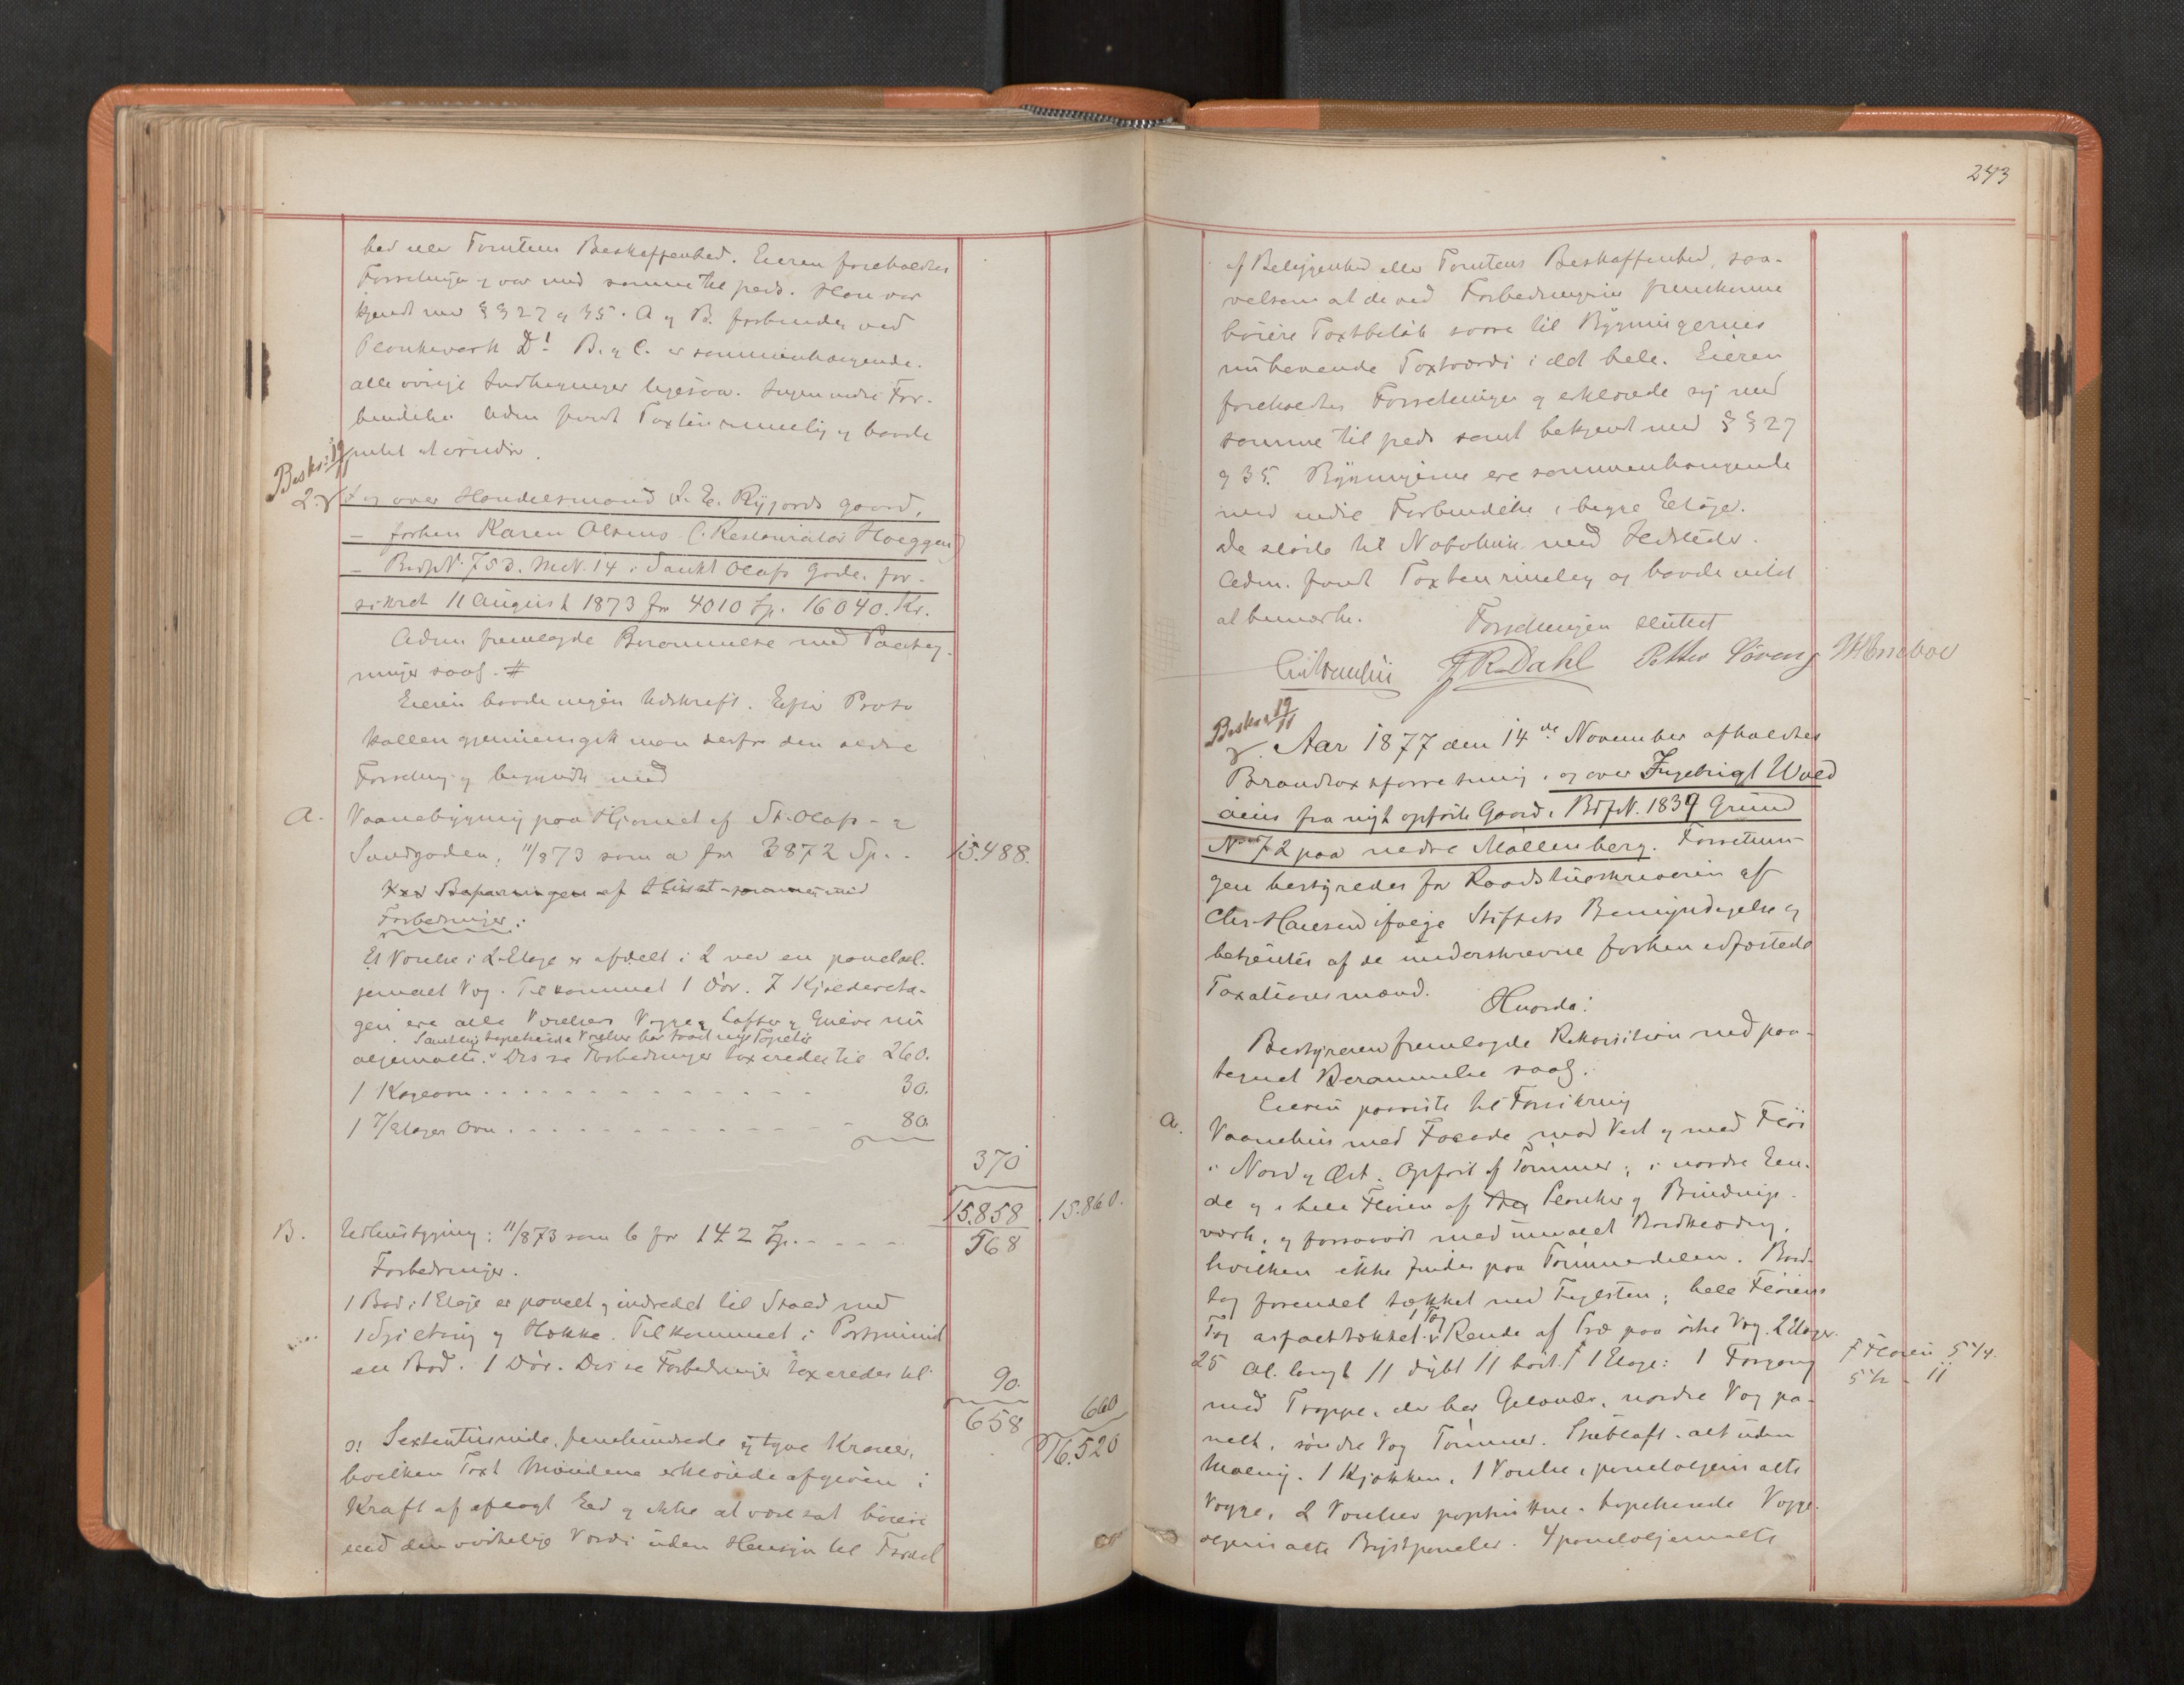 hed eller Tomtens Beskaffenhed. Eieren foreholdtes
Forretningen og var med samme tilfreds. Han var
kjendt med §§ 27 og 35. A og B. forbindes ved
Plankeverk D! B. og C. er sammenhængende.
alle øvrige Indhegninger ligesaa. Ingen indre For-
bindelse. Adm fandt Taxten rimelig og havde
intet at erindre.
Beskr: 19/11
2. I og over Handelsmand L. E. Rygjords gaard,
- forhen Karen Olsens (: Restauratør Hoeggen)
- BrdfN. 753. MN. 14 i Sankt Olafs Gade, for-
sikret 11 August 1873 for 4010 Sp. 16040. Kr.
Adm fremlagde Berammelse med Paateg-
ninger saal. #
Eieren havde ingen Udskrift. Efter Proto
kollen gjennemgik man derfor den ældre
Forretning og begyndte med
A. Vaanebygning paa Hjørnet af St. Olafs- og
Sandgaden, 11/8 73 som a for 3872 Sp. - 15.488.
af Huset
Forbedringer:
Et Værelse i 2 Etage er afdelt i 2 ved en panelt ol-
jemalet Væg. Tilkommet 1 Dør. I Kjældereta-
gen ere alle Værelsers Vægge og Lofter og Gulve nu
Samtlige tapetserede Værelser har faaet nye Tapeter
oljemalte. Disse Forbedringer taxeredes til 260.
1 Kogeovn - - - - 30.
1 7/Etages Ovn - - - - 80.
370
15.858 15.860.
B. Udhusbygning: 11/8 73 som b for 142 Sp. - - - - 568
Forbedringer.
1 Bod i 1 Etage er panelt og indredet til Stald med
1 Spiltoug og Hække. Tilkommet i Portrummet
en Bod. 1 Dør. Disse Forbedringer taxeredes til 90.
658 660
16.520
ɔ: Sextentusinde, femhundrede og tyve Kroner,
hvilken Taxt Mændene erklærede afgiven i
Kraft af aflagt Eed og ikke at være sat høiere
end den virkelige Værdi uden Hensyn til Fordel
243
af Beliggenhed eller Tomtens Beskaffenhed, saa-
velsom at de ved Forbedringerne fremkomne
høiere Taxtbeløb svare til Bygningernes
nuhavende Taxtværdi i det hele. Eieren
foreholdtes Forretningen og erklærede sig med
samme tilfreds samt bekjendt med §§ 27
og 35. Bygningerne ere sammenhængende
med indre Forbindelse i begge Etager.
De støde til Nabohuse med Ildsteder.
Adm. fandt Taxten rimelig og havde intet
at bemærke.
Forretningen sluttet
J R Dahl Petter
Beskr 19/11
Aar 1877 den 14de November afholdtes
Brandtaxtforretning i og over Ingebrigt Wold
aens fra nyt opførte Gaard, BdfN. 1839 Grund
No 72 paa nedre Møllenberg. Forretnin-
gen bestyredes for Raadstueskriveren af
Chr. Hansen ifølge Stiftets Bemyndigelse og
betjentes af de underskrevne forhen edfæstede
Taxationsmænd.
Hvorda:
Bestyreren fremlagde Rekvisition med paa-
tegnet Berammelse saal.
Eieren paaviste til Forsikring
a. Vaanehus med Facade mod Vest og med Fløi
i Nord og Øst. Opført af Tømmer, i nordre En-
de og i hele Fløien af Planker og Bindings-
værk, og forsaavidt med umalet Bordklædning,
hvilken ikke findes paa Tømmerdelen. Bord-
tag forendel tækket med Taglsten; hele Fløiens
Tag asfalttækket. 1 Tag Rende af Træ paa østre Væg. 2 Etager.
25 Al. langt 11 dybt 11 høit. † 1 Etage: 1 Forgang
† Fløien 5 1/4.
5 1/2 - 11
med Trappe, der har Gelænder, nordre Væg pa-
nelt, søndre Væg Tømmer. Stubloft. alt uden
Maling. 1 Kjøkken, 1 Værelse, panel oljemalte
Vægge, 2 Værelser papstrukne - tapetserede Vægge.
oljemalte Brystpaneler. 4 panel oljemalte